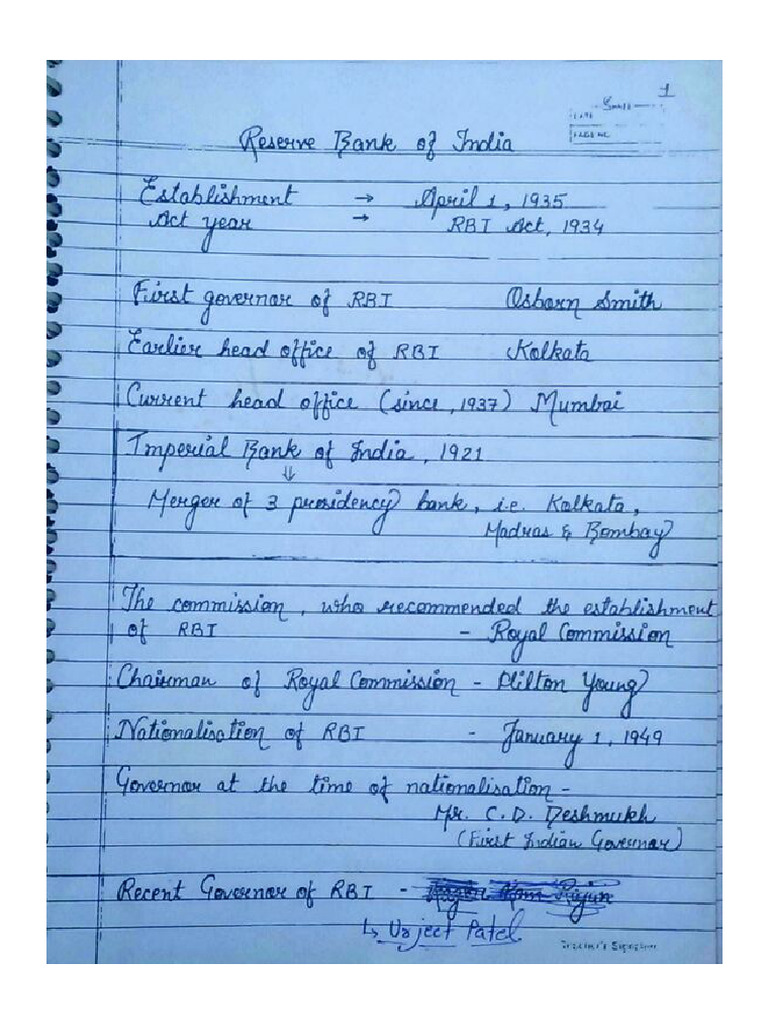 1
DATE
PAGE NO.
Reserve Bank of India
Establishment → April 1, 1935
Act year → RBI Act, 1934
First governor of RBI Osborn Smith
Earlier head office of RBI Kolkata
Current head office (since, 1937) Mumbai
Imperial Bank of India, 1921
⇓
Merger of 3 presidency bank, i.e. Kolkata,
Madras & Bombay
The commission, who recommended the establishment
of RBI - Royal Commission
Chairman of Royal Commission - Hilton Young
Nationalisation of RBI - January 1, 1949
Governor at the time of nationalisation -
Mr. C.D. Deshmukh
(First Indian Governor)
Recent Governor of RBI -
↳ Urjeet Patel
Teacher's Signature